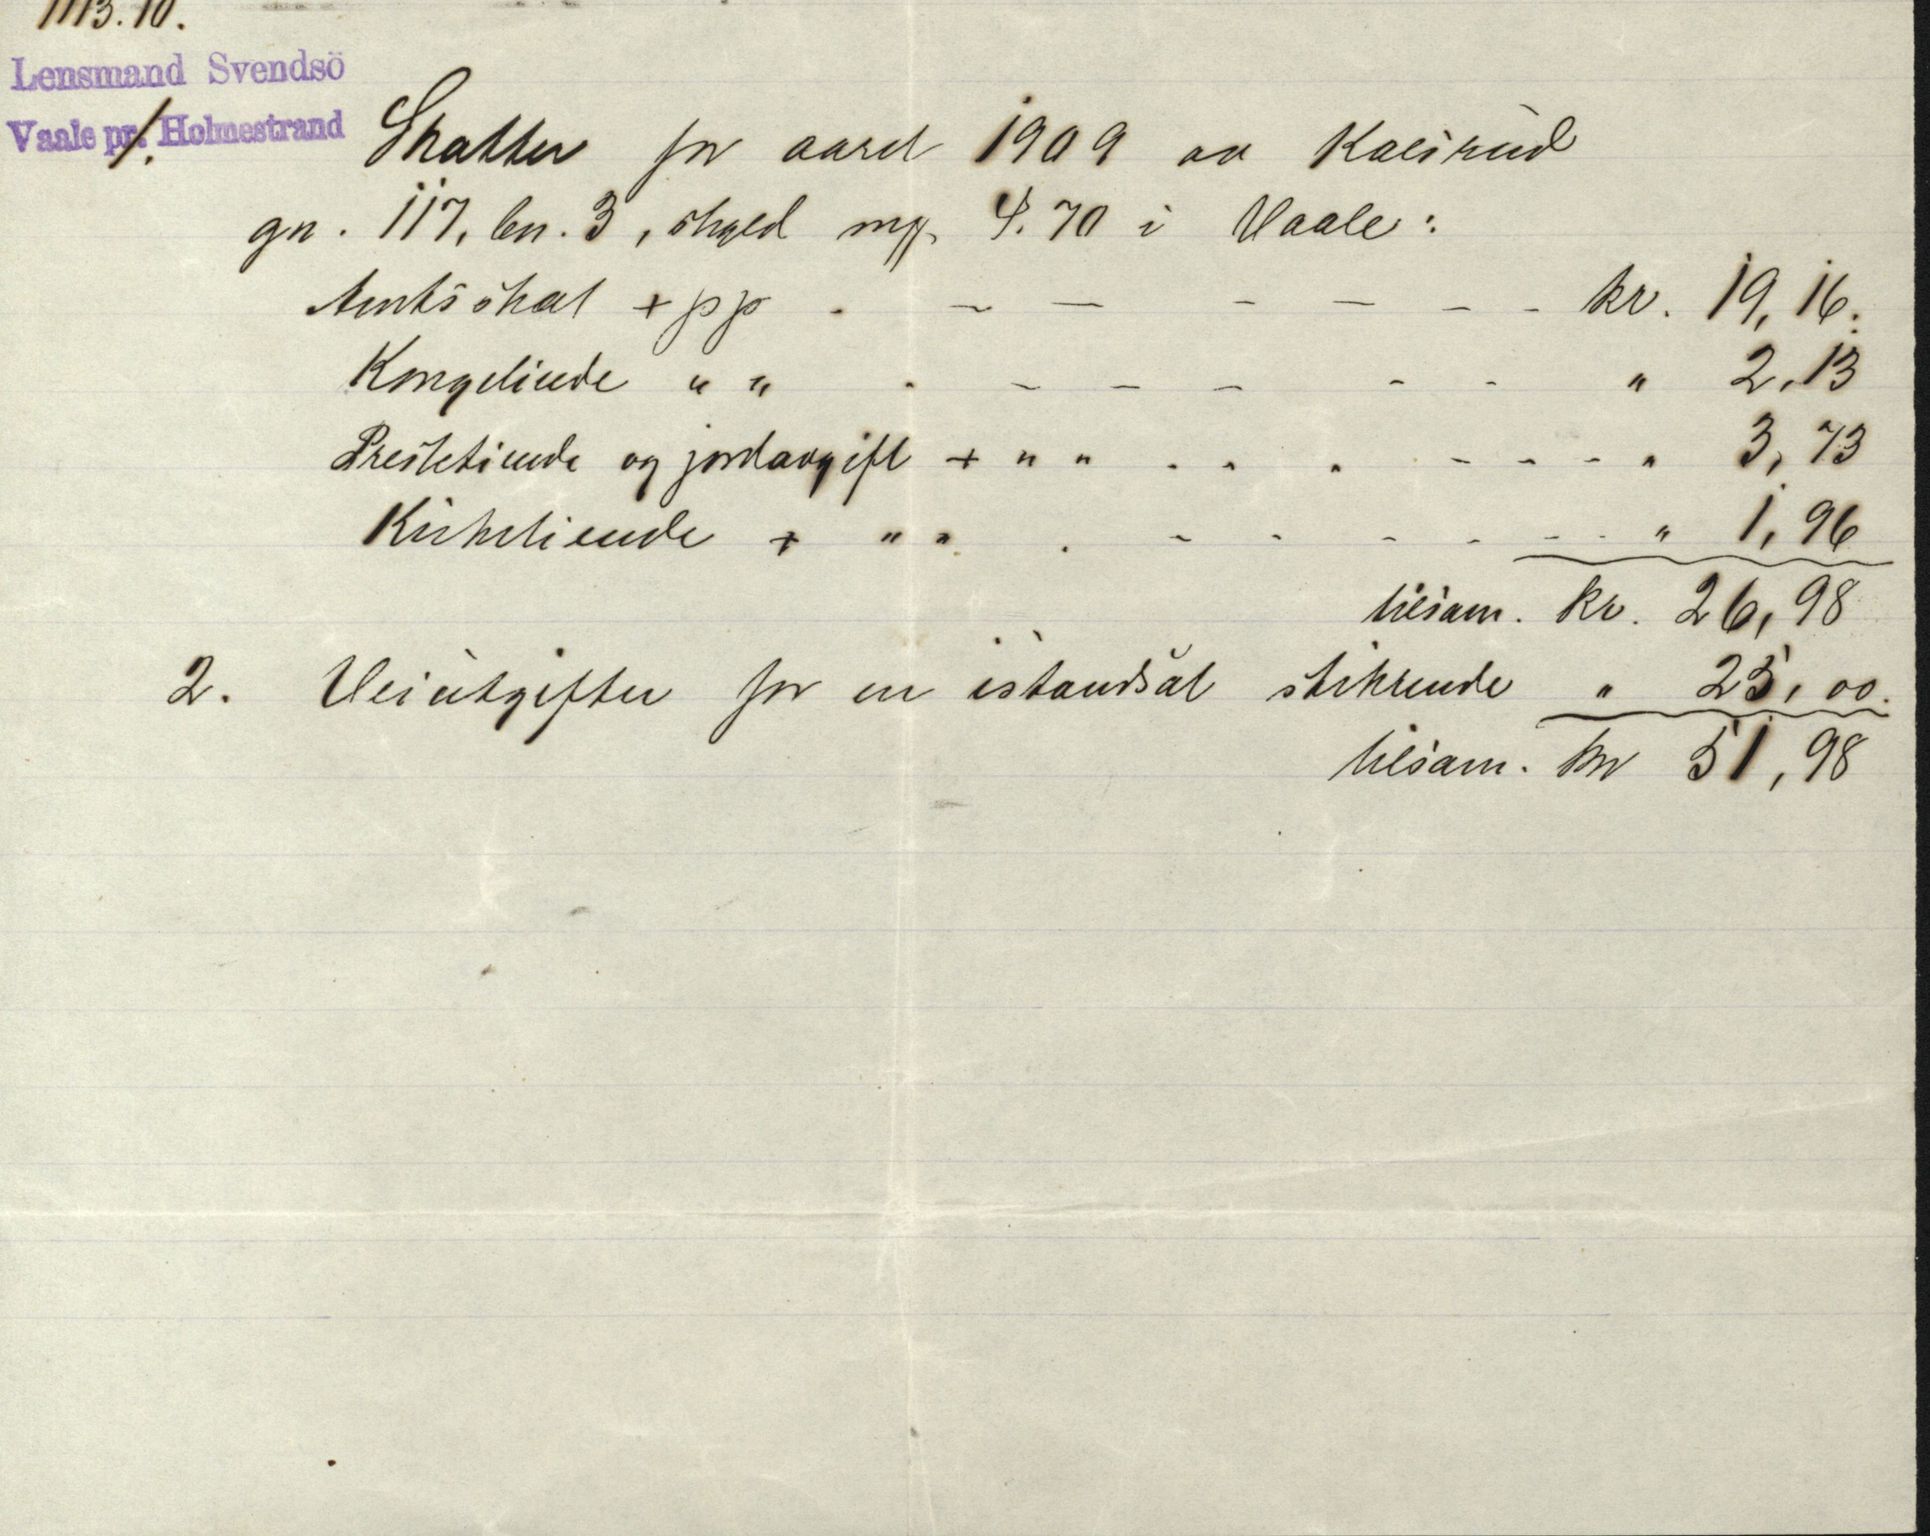 1113.10.
Lensmand Svendsö
Vaale pr. Holmestrand
1. Skatter for aaret 1909 av Kaalsrud
gn. 117, bn. 3, skyld mk. 4.70 i Vaale:
Amtsskat + pp . - - - - - - kr. 19,16.
Kongetiende " " . - - - - - " 2,13
Prestetiende og jordavgift + " " . . . - - - - " 3,73
Kirketiende + " " . - - - - - - " 1,96
tilsam. kr. 26,98
2. Veiutgifter for en istandsat stikrende " 25,00.
tilsam. kr 51,98